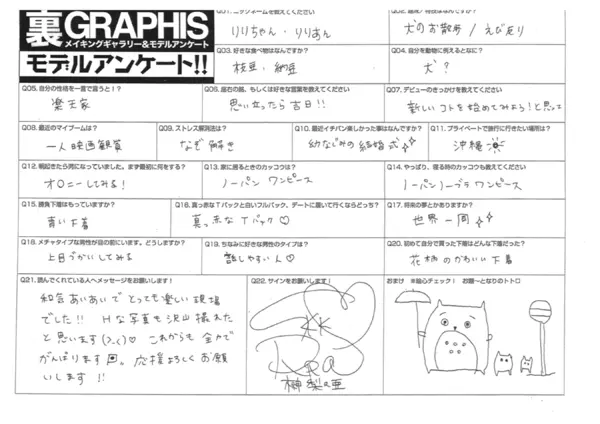 裏GRAPHIS
メイキングギャラリー&モデルアンケート
モデルアンケート!!
Q01. ニックネームを教えてください
りりちゃん・りりあん
犬のお散歩 / えび反り
Q03. 好きな食べ物はなんですか?
枝豆・納豆
Q04. 自分を動物に例えるとなに?
犬?
Q05. 自分の性格を一言で言うと!?
楽天家
Q06. 座右の銘、もしくは好きな言葉を教えてください
思い立ったら吉日!!
Q07. デビューのきっかけを教えてください
新しいコトを始めてみよう!と思って
Q08. 最近のマイブームは?
一人映画観賞
Q09. ストレス解消法は?
なぞ解き
Q10. 最近イチバン楽しかった事はなんですか?
幼なじみの結婚式
Q11. プライベートで旅行に行きたい場所は?
沖縄
Q12. 朝起きたら男になっていました。まず最初に何をする?
オ〇ニーしてみる!
Q13. 家に居るときのカッコウは?
ノーパン ワンピース
Q14. やっぱり、寝る時のカッコウも教えてください
ノーパンノーブラ ワンピース
Q15. 勝負下着はもっていますか?
青い下着
Q16. 真っ赤なTバックと白いフルバック、デートに履いて行くならどっち?
真っ赤なTバック♡
Q17. 将来の夢とかありますか?
世界一周
Q18. メチャタイプな男性が目の前にいます。どうしますか?
上目づかいしてみる
Q19. ちなみに好きな男性のタイプは?
話しやすい人♡
Q20. 初めて自分で買った下着はどんな下着だった?
花柄のかわいい下着
Q21. 読んでくれている人へメッセージをお願いします!
和気あいあいでとっても楽しい現場
でした!! Hな写真も沢山撮れた
と思います(>_<)♡ これからも全力で
がんばります。応援よろしくお願
いします!!
Q22. サインをお願いします!
榊梨々亜
おまけ ※絵心チェック! お題〜となりのトトロ